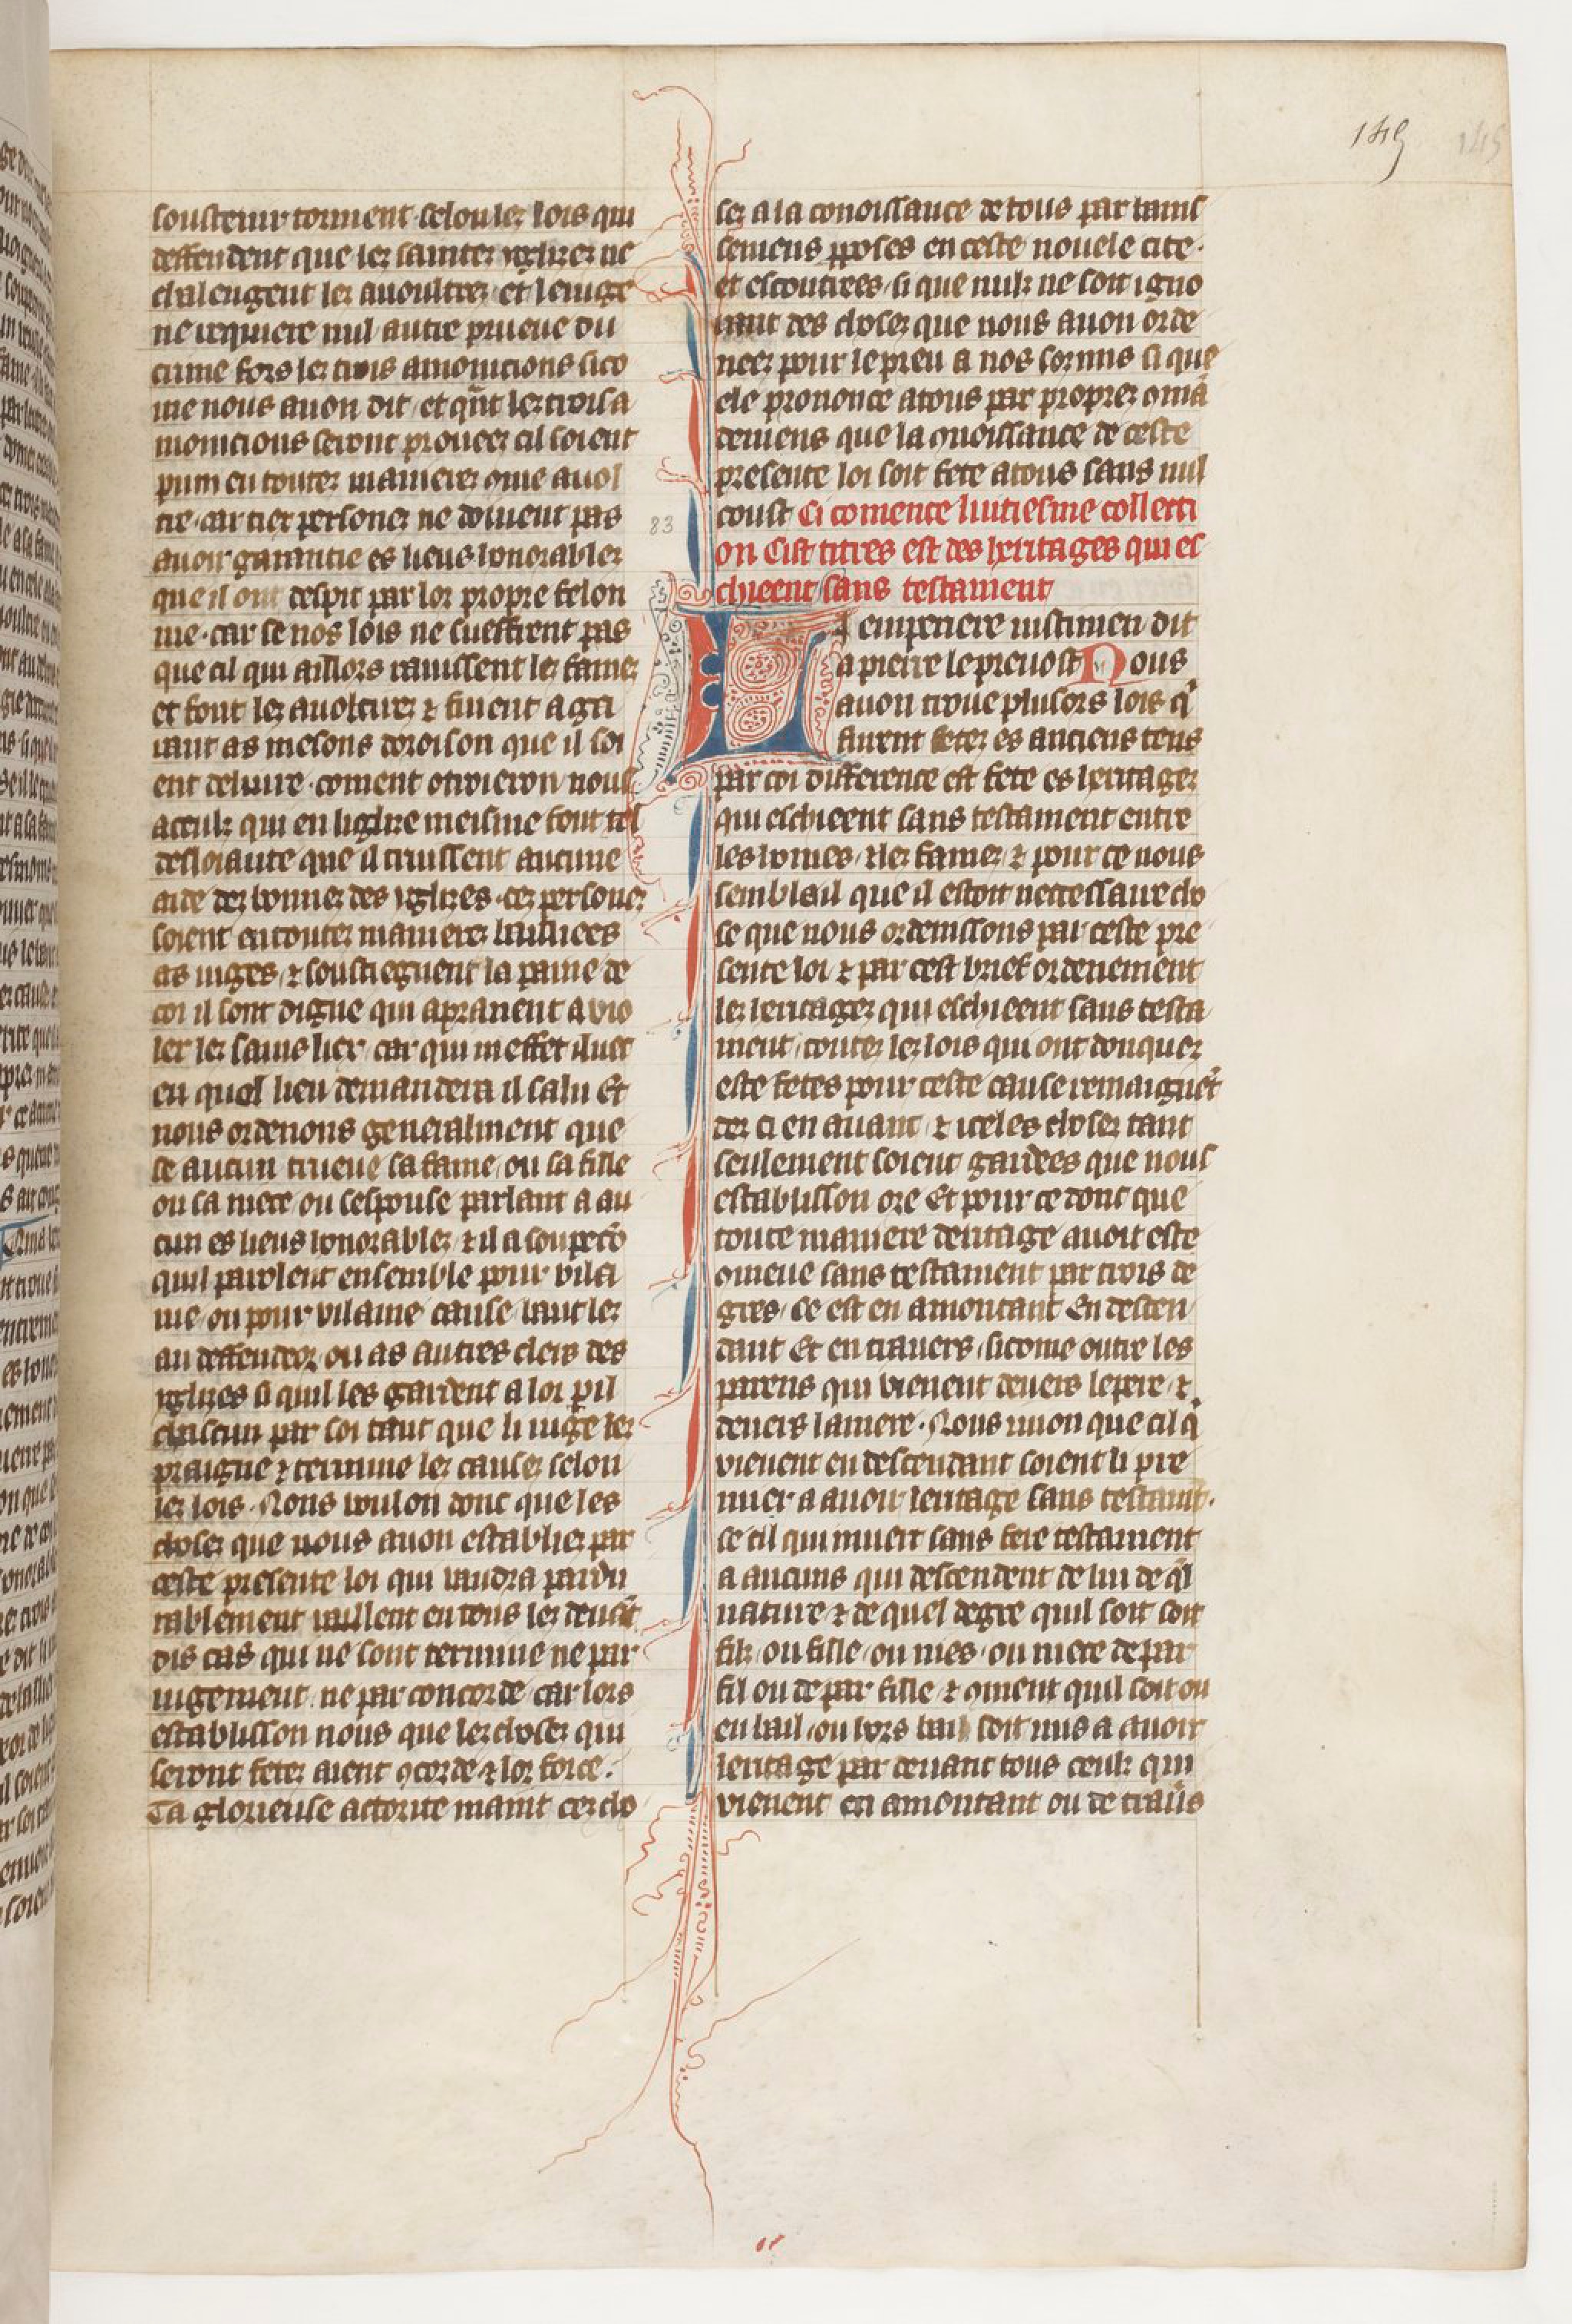 145
145
soustenir torment selonc lez lois qui
deffendent que lez saintez yglizez ne
chalengent lez auoultrez et le iuge
ne requiere nul autre prueue du
crime fors lez trois amonicions sico
me nous auon dit et qñt lez trois a
monicions seront prouees cil soient
puni en toutez manierez 9me auol
tre car tiex personez ne doiuent pas
auoir garantie es lieus honorablez
que il ont despit par lor propre felon
nie car se nos lois ne sueffrent pas
que cil qui aillors rauissent lez famez
et font lez auoltirez & fuient a ga
rant as mesons doroison que il soi
ent deliure coment otroieron nous
aceulz qui en liglize meisme font tel
desloiaute que il truissent aucune
aide dez bonnez des yglizes cez personez
soient en toutez manierez bailliees
as iuges & soustiegnent la paine de
coi il sont digne qui apranent a vio
ler lez sains liex car qui meffet iluec
en quel lieu demandera il salu Et
nous ordenons generalment que
se aucun trueue sa fame ou sa fille
ou sa niece ou sespouse parlant a au
cun es lieus honorablez & il a soupecō
quil parolent ensemble pour vila
nie ou pour vilaine cause baut lez
au deffendeor ou as autres clers des
yglizes si quil les gardent a lor pil
chascun par soi tant que li iuge lez
praigne & termine lez causez selon
lez lois Nous voulon donc que les
chosez que nous auon establiez par
ceste presente loi qui vaudra pardu
rablement vaillent en tous lez deuāt
dis cas qui ne sont termine ne par
iugement ne par concorde car lors
establisson nous que lez chosez qui
seront fetez aient 9corde & lor force
Ta glorieuse actorite maint cez cho
83
sez a la conoissance de tous par ranis
semens pposes en ceste nouele cite
et escoutrees si que nulz ne soit igno
rant des chosez que nous auon orde
neez pour le preu a nos sormis si que
ele prononce a tous par proprez 9mā
demens que la 9noissance de ceste
presente loi soit fete a tous sans nul
coust Ci comence luitiesme collecti
on Cist titres est des heritages qui es
chieent sans testament
L empeeriere iustinien dit
a pierre le preuost Nous
auon troue plusors lois q̄
furent fetez es anciens tens
par coi difference est fete es heritagez
qui eschieent sans testament entre
les homes & lez famez & pour ce nous
semblail que il estoit necessaire cho
se que nous ordenissons par ceste pre
sente loi & par cest brief ordenement
lez heritagez qui eschieent sans testa
ment toutez lez lois qui ont donquez
este fetes pour ceste cause remaignēt
dez ci en auant & iceles chosez tant
seulement soient gardees que nous
establisson ore Et pour ce donc que
toute maniere deritage auoit este
9meue sans testament par trois de
gres Ce est en amontant En descen
dant Et en trauers sicome outre les
parens qui vienent deuers le pere &
deuers la mere Nous uuon que cil q̄
vienent en descendant soient li pre
mier a auoir leritage sans testamēt
se cil qui muert sans fere testament
a aucuns qui descendent de lui de q̄l
nature & de quel degre quil soit soit
filz ou fille ou nies ou niece de par
fil ou de par fille & 9ment quil soit ou
en bail ou hors bail soit mis a auoir
leritage par deuant tous ceulz qui
vienent en amontant ou de trauēs